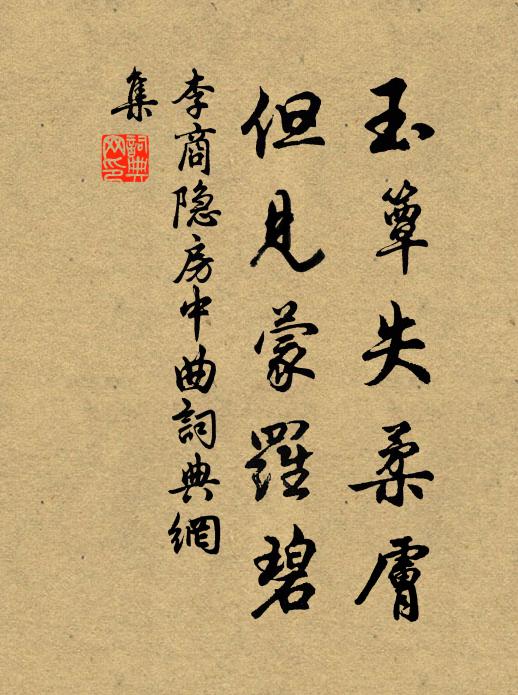 玉簟失柔膚
但見蒙羅碧
李商隐房中曲詞典網
集
詞典网印